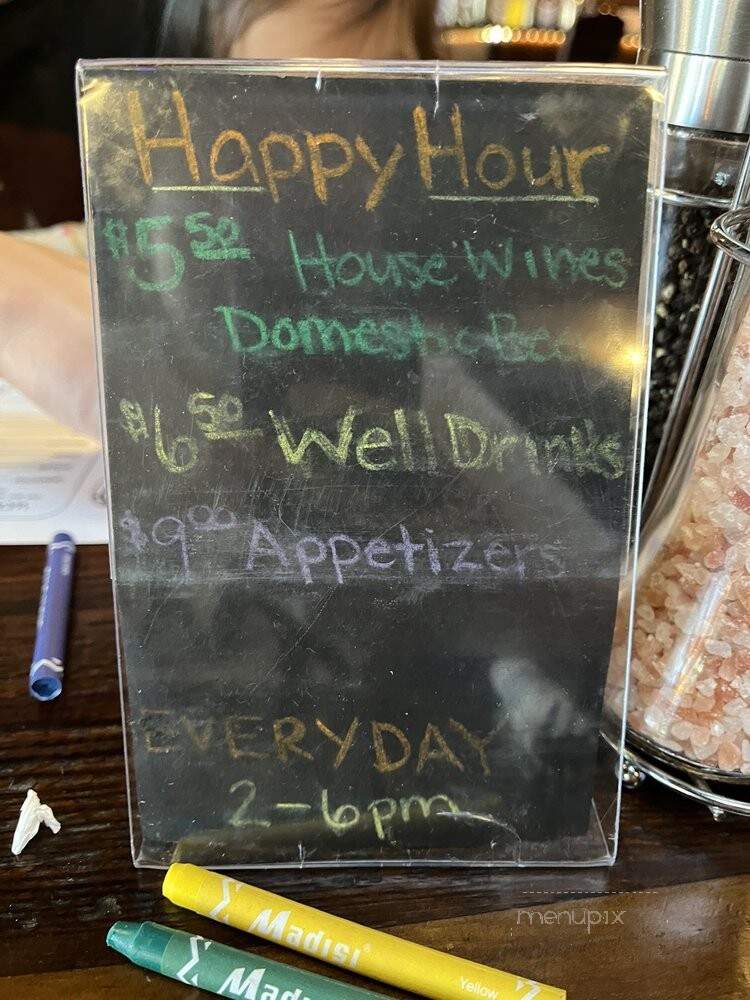 Happy Hour
$5.50 House Wines
Domestic Beer
$6.50 Well Drinks
$9.00 Appetizers
EVERYDAY
2-6pm
Madisi®
Yellow
menupix